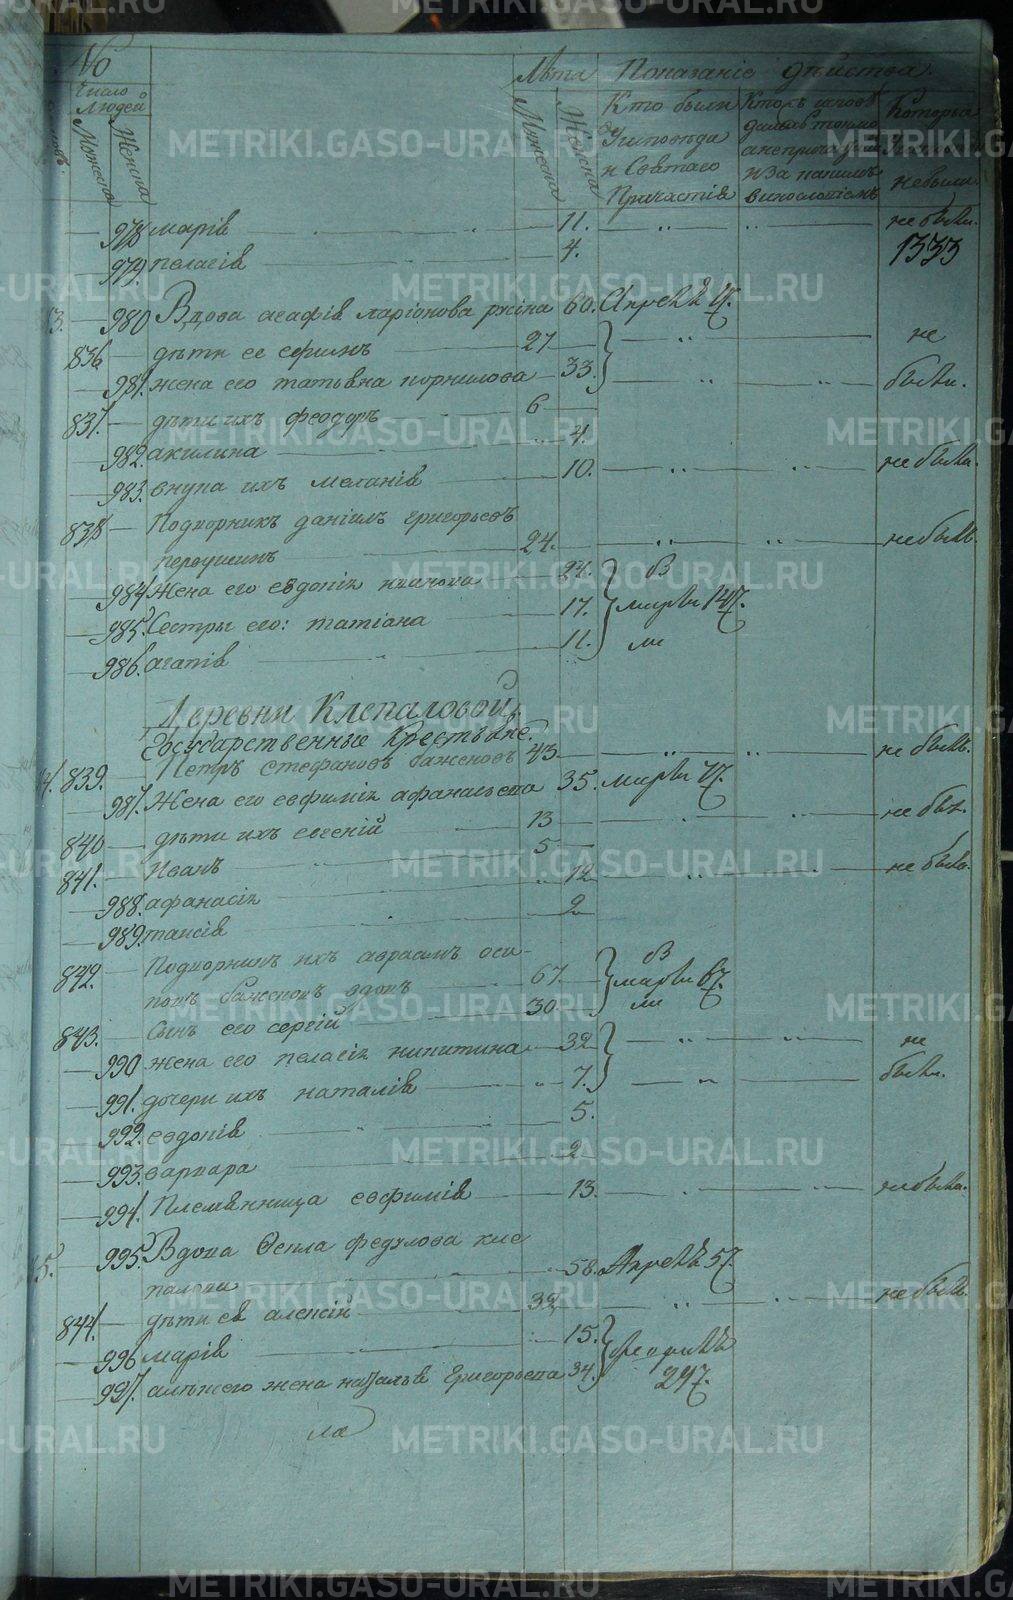 № Лѣта Показаніе дѣйства.
Число Людей
Мужеска Женска Мужеска Женска
Кто были у исповеди и Святаго Причастія
Которы не были
978 марія 11. не были.
979. пелагія 4. 1333
980 Вдова агафія ларіонова 60. Апреля 17.
836 дѣти ее ефимъ 27 не
981. жена его татьяна корнилова 33. были.
837. дѣти ихъ феодоръ 6
982. акилина 4.
983. внука ихъ меланія 10. не была.
838 Подворникъ даніилъ григорьевъ
24. не былъ.
984 Жена его евдокія 24. въ
985. Сестры его: татіана 17. марта 14.
986. агапія 11.
Деревни Клепаловой
Государственные Крестьяне.
839. Петръ стефановъ баженовъ 43 не былъ.
987. Жена его евфимія афанасьева 35. марта 7.
840 дѣти ихъ евгеній 13 не был.
841. Иванъ 5 не были.
988. афанасія 12
989. таисія 2
842. Подворникъ ихъ авраамъ оси-
повъ баженовъ вдовъ 67. въ марта 6
843. Сынъ его сергій 30.
990 жена его пелагія никитина 32 не
991. дочери ихъ наталія 7. были.
992. евдокія 5.
993. варвара 2
994. Племянница евфимія 13. не была.
995. Вдова Фекла федулова кле
палова 58. Апреля 5
844. дѣти ея алексій 32 не былъ.
996 марія 15.
997. алексіего жена наталья Григорьева 34. Февраля 24.
METRIKI.GASO-URAL.RU